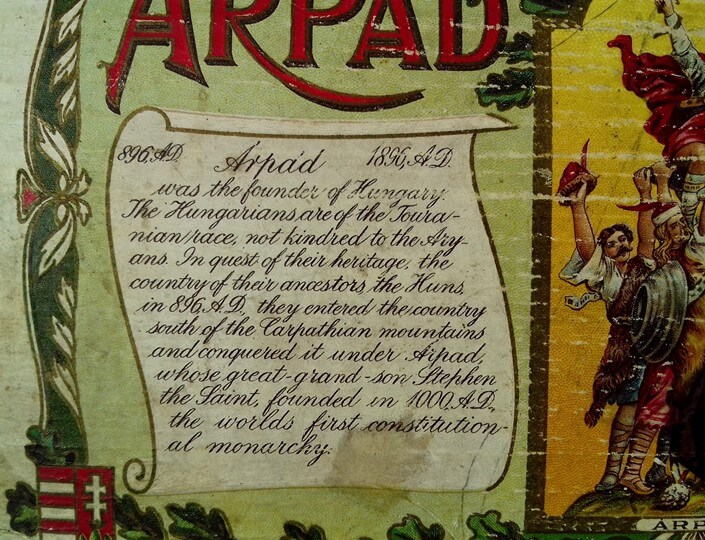 ARPAD
896,A.D. Árpád 1896,A.D.
was the founder of Hungary.
The Hungarians are of the Toura-
nian race, not kindred to the Ary-
ans. In quest of their heritage, the
country of their ancestors, the Huns,
in 896, A.D. they entered the country
south of the Carpathian mountains
and conquered it under Árpád,
whose great-grand-son Stephen
the Saint, founded in 1000, A.D.,
the worlds first constitution-
al monarchy.
ARP